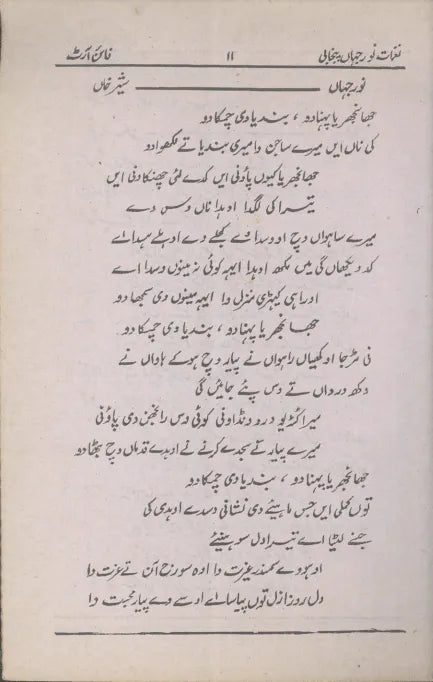 نغمات نورجہاں پنجابی ۱۱ فائن آرٹ
نورجہاں شیرخاں
جھانجھریا پہنا دو ، بندیا دی چمکا دو
کی ناں ایں میرے ساجن دا میری بندیا تے لکھوا دو
جھانجھریا کیوں پاؤنی ایں کدے لئی چھنکاونی ایں
تیرا کی لگدا اوہدا ناں دس دے
میرے ساہواں وچ او وسدا وے کھلے وے اوہلے ہسدا اے
کد ویکھاں گی میں مکھ اوہدا ایہہ کوئی نہ مینوں دسدا اے
اوراہی کیہڑی منزل دا ایہہ مینوں وی سمجھا دو
جھانجھریا پہنا دو ، بندیا وی چمکا دو
نی مڑجا اوکھیاں راہواں نے پیار وچ ہوکے ہاواں نے
دکھ درداں تے وس پئے جائیں گی
میرا کڑیو درد ونڈاونی کوئی دس رانجھن دی پاؤنی
میرے پیار نے سجدے کرنے نے اوہدے قدماں وچ بٹھا دو
جھانجھریا پہنا دو ، بندیا دی چمکا دو
توں کملی ایں جس ماہیئے دی نشانی دسدے اوہدی کی
جنے لٹیا اے تیرا دل سوہنیئے
اوہووے سمندر عزت دا اوہ سورج آن تے عزت دا
دل روز ازل توں پیاسا اے اوسے دے پیار محبت دا